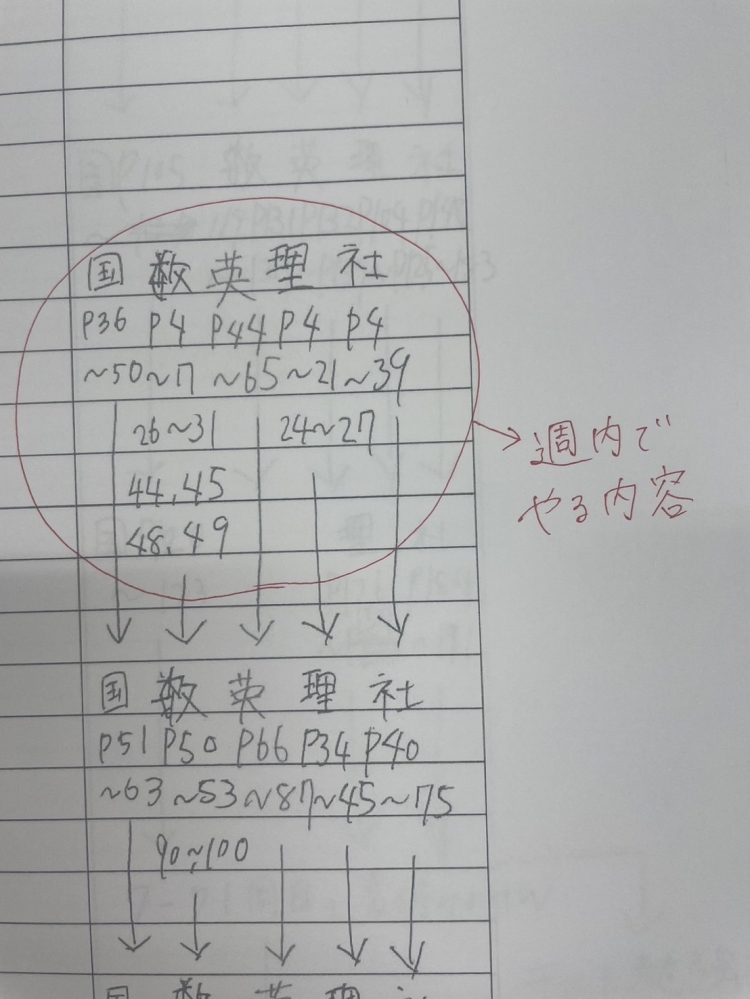 国 数 英 理 社
P36 P4 P44 P4 P4
~50~17 ~65~21~39
26~31 24~27
44.45
48.49
週内で
やる内容
国 数 英 理 社
P51 P50 P66 P34 P40
~63~53~87~45~75
90~100
国 数 英 理 社